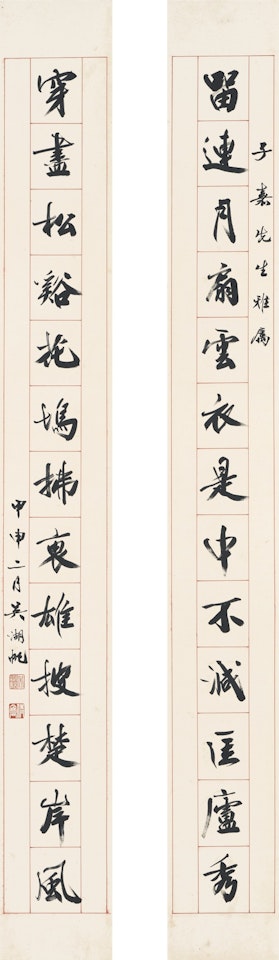 子先生雅屬
留連月扇雲衣是中不減匡廬秀
穿盡松谿塢拂雄披楚岸風
甲申二月吳湖帆